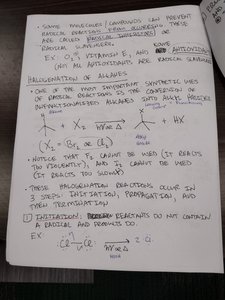 • SOME MOLECULES/COMPOUNDS CAN PREVENT
RADICAL REACTIONS FROM OCCURRING. THESE
ARE CALLED RADICAL INHIBITORS OR
RADICAL SCAVENGERS.
EX: O2, VITAMIN E, AND SOME ANTIOXIDANTS
(NOT ALL ANTIOXIDANTS ARE RADICAL SCAVENGERS
HALOGENATION OF ALKANES
• ONE OF THE MOST IMPORTANT SYNTHETIC USES
OF RADICAL REACTIONS IS THE CONVERSION OF
UNFUNCTIONALIZED ALKANES INTO ALKYL HALIDES
H
+ X2
hv or Δ
X
+ HX
ALKANE
ALKYL HALIDE
(X2 = Br2 or Cl2)
• NOTICE THAT F2 CANNOT BE USED (IT REACTS
TOO VIOLENTLY), AND I2 CANNOT BE USED
(IT REACTS TOO SLOWLY)
• THESE HALOGENATION REACTIONS OCCUR IN
3 STEPS: INITIATION, PROPAGATION, AND
THEN TERMINATION
1 INITIATION: REACTANTS DO NOT CONTAIN
A RADICAL AND PRODUCTS DO.
EX:
Cl Cl
hv or Δ
2 Cl